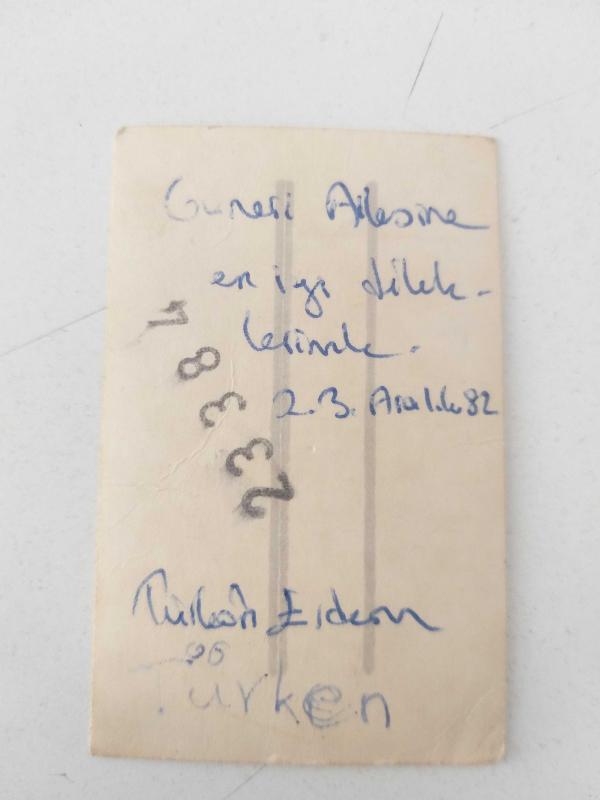 Güneri Ailesine
en iyi dilek-
lerimle.
2.3. Aralık 82
23 3 8 4
Türkân Erdem
Türken